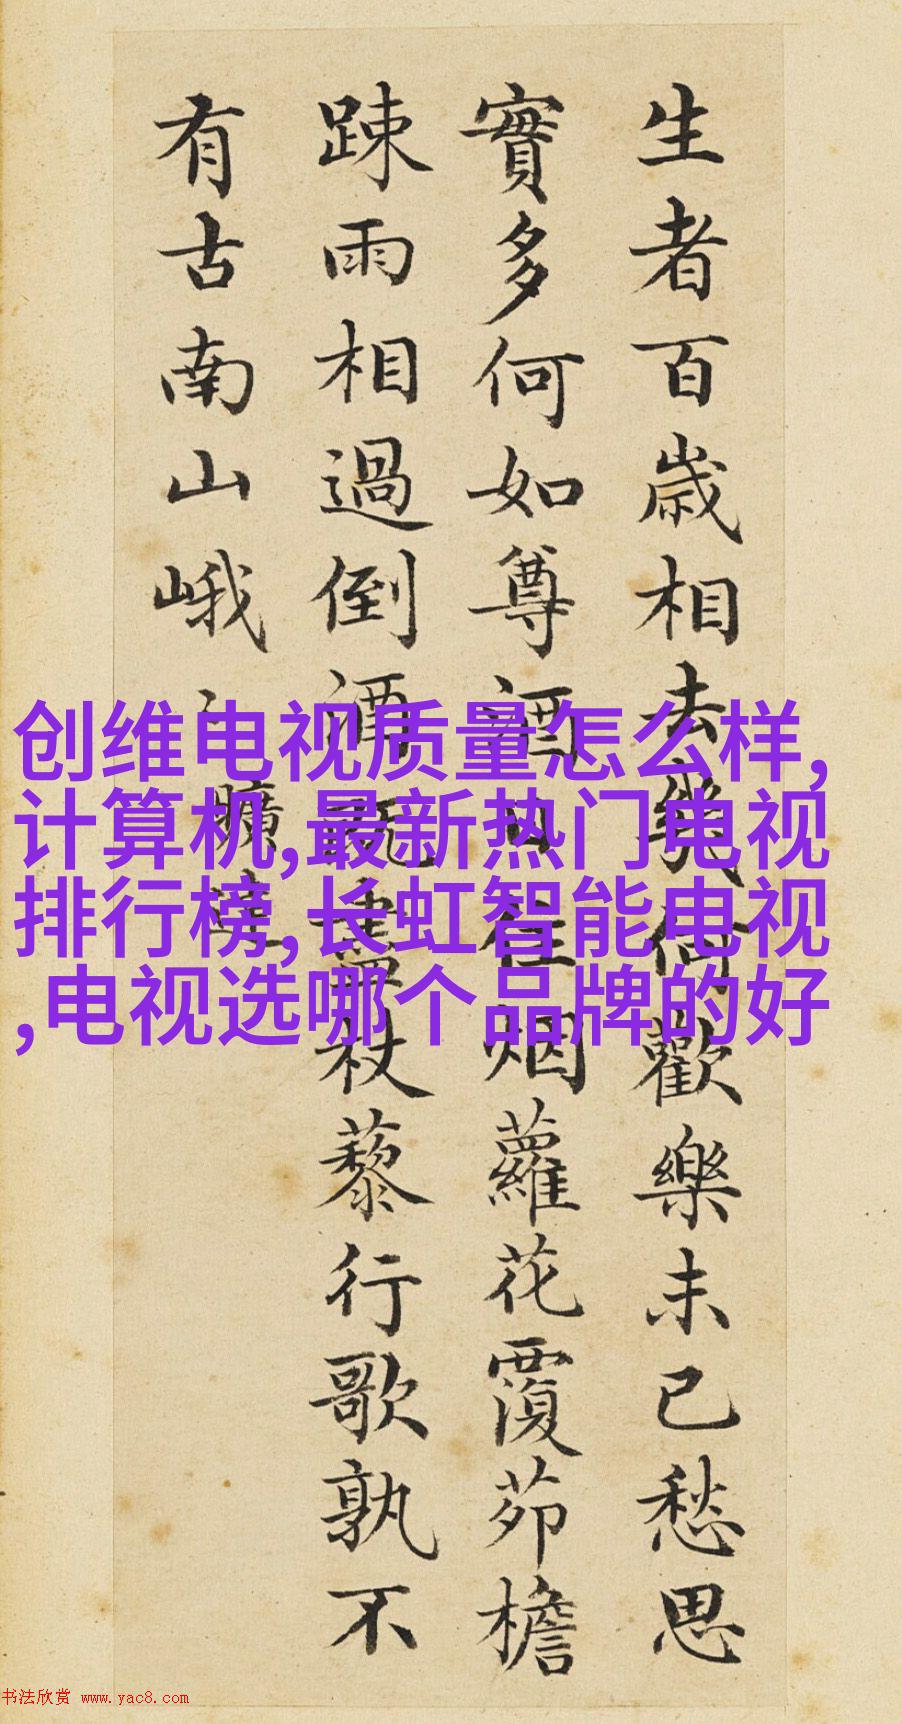 生者百歳相去幾何歡樂未已愁思
實多何如尊酒日往烟蘿花覆茆檐
踈雨相過倒酒既盡杖藜行歌孰不
有古南山峨〻曠達
创维电视质量怎么样,
计算机,最新热门电视
排行榜,长虹智能电视
,电视选哪个品牌的好
书法欣赏 www.yac8.com